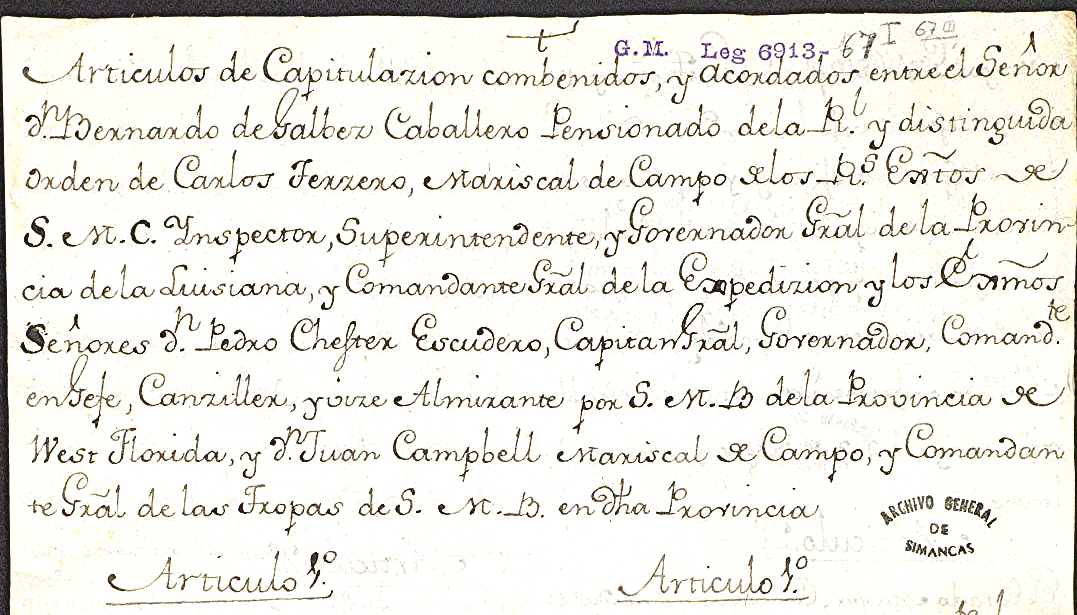 G.M. Leg 6913,- 67 I 67 III
Articulos de Capitulazion combenidos, y acordados entre el Señor
dn. Bernardo de Galbez Caballero Pensionado de la Rl. y distinguida
orden de Carlos Terzero, Mariscal de Campo de los Rs. Extos de
S. M. C. Ynspector, Superintendente, y Governador Gral de la Provin-
cia de la Luisiana, y Comandante Gral de la Expedizion y los Exmos
Señores dn. Pedro Chester Escudero, Capitan Gral, Governador, Comandte.
en Gefe, Canziller, y vize Almirante por S. M. B de la Provincia de
West Florida, y dn. Juan Campbell Mariscal de Campo, y Comandan
te Gral de las Tropas de S. M. B. en dha Provincia
ARCHIVO GENERAL
DE
SIMANCAS
Articulo 1.o Articulo 1.o